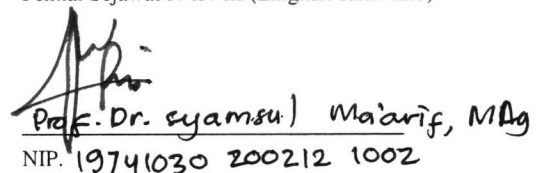 Prof. Dr. syamsul Ma'arif, MAg
NIP. 19741030 200212 1002